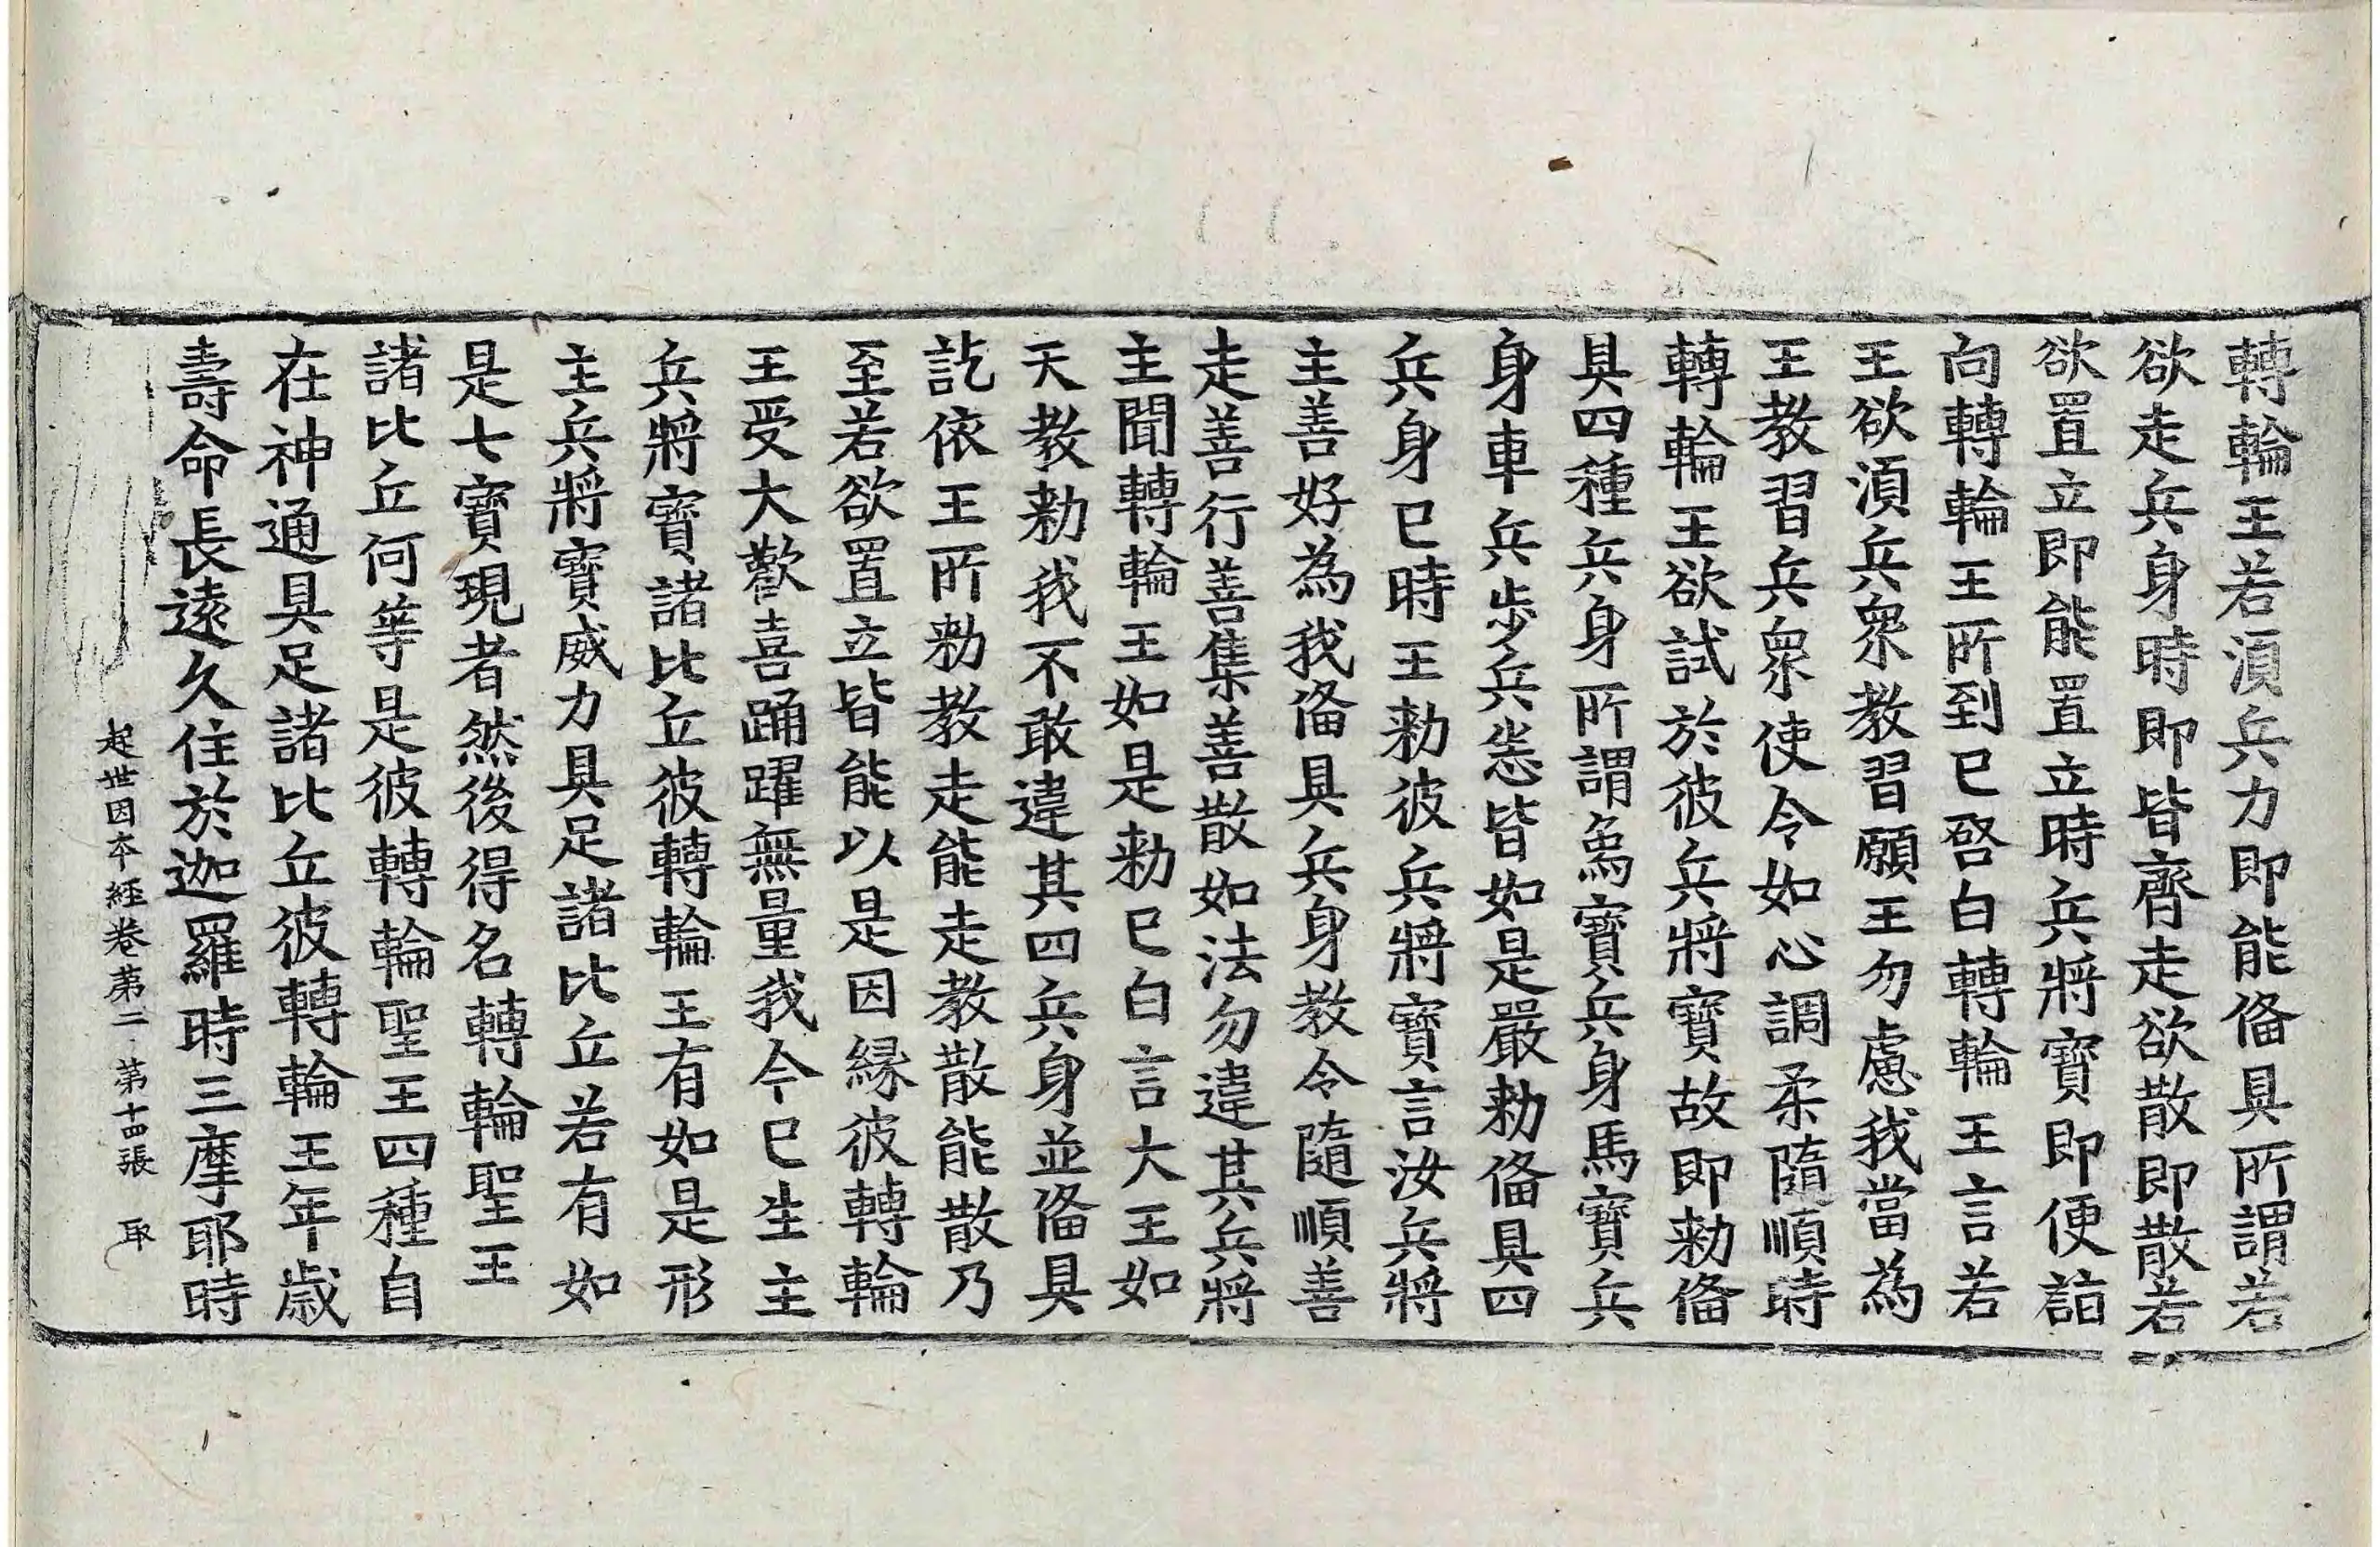 轉輪王若湏兵力即能俻具所謂若
欲走兵身時即皆齊走欲散即散若
欲置立即能置立時兵將寶即便詣
向轉輪王所到已啓白轉輪王言若
王欲湏兵衆教習願王勿慮我當為
王教習兵衆使令如心調柔隨順時
轉輪王欲試於彼兵將寶故即勑俻
具四種兵身所謂象寶兵身馬寶兵
身車兵步兵悉皆如是嚴勑俻具四
兵身已時王勑彼兵將寶言汝兵將
主善好為我俻具兵身教令隨順善
走善行善集善散如法勿違其兵將
主聞轉輪王如是勑已白言大王如
天教勑我不敢違其四兵身並俻具
訖依王所勑教走能走教散能散乃
至若欲置立皆能以是因縁彼轉輪
王受大歡喜踊躍無量我今已生主
兵將寶諸比丘彼轉輪王有如是形
主兵將寶威力具足諸比丘若有如
是七寶現者然後得名轉輪聖王
諸比丘何等是彼轉輪聖王四種自
在神通具足諸比丘彼轉輪王年歲
壽命長遠久住於迦羅時三摩耶時
起世因本經卷第二 第十四張 取